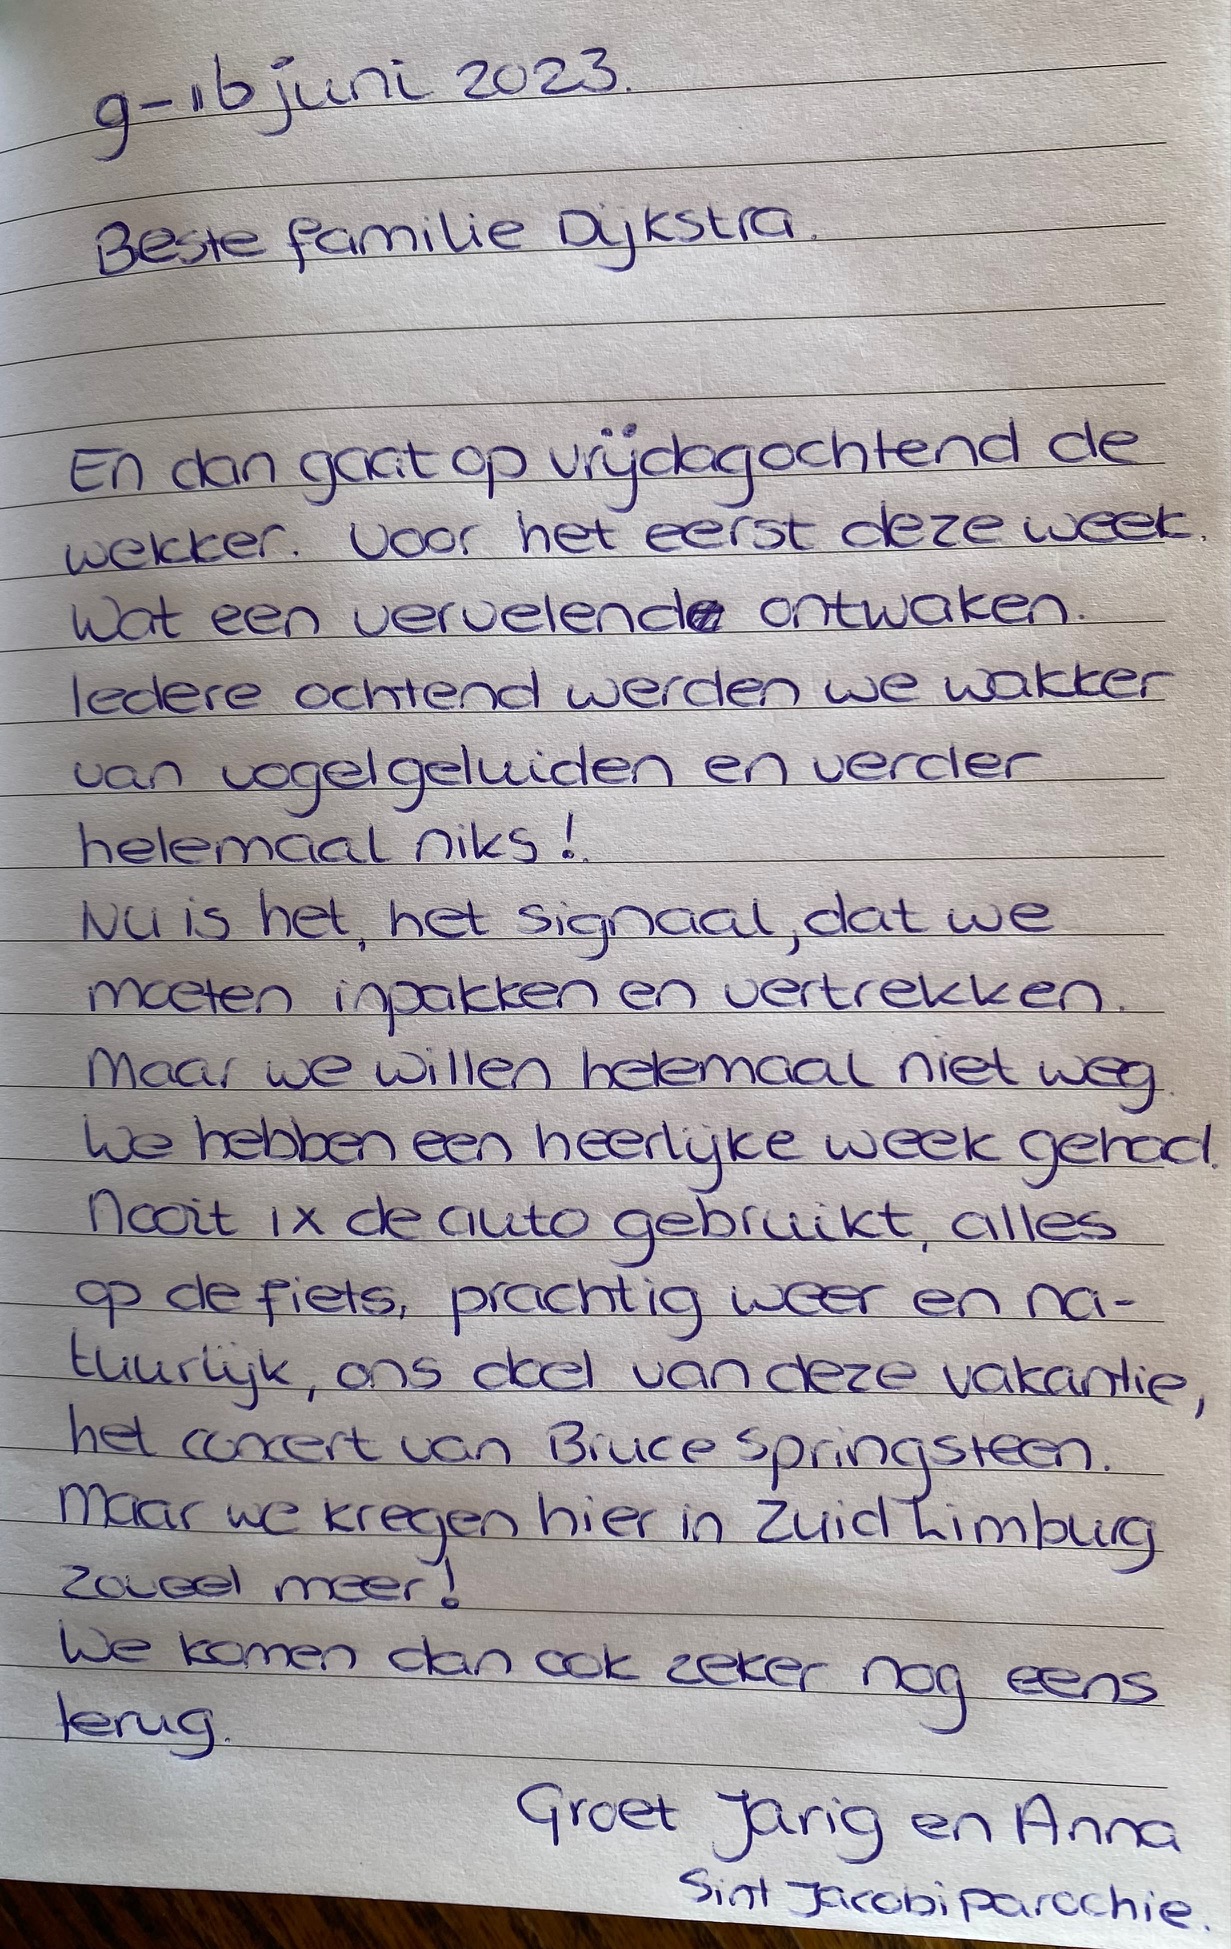 9-16 juni 2023.
Beste familie Dijkstra.
En dan gaat op vrijdagochtend de
wekker. Voor het eerst deze week.
Wat een vervelend ontwaken.
Iedere ochtend werden we wakker
van vogelgeluiden en verder
helemaal niks!
Nu is het, het signaal, dat we
moeten inpakken en vertrekken.
Maar we willen helemaal niet weg.
We hebben een heerlijke week gehad.
Nooit 1x de auto gebruikt, alles
op de fiets, prachtig weer en na-
tuurlijk, ons doel van deze vakantie,
het concert van Bruce Springsteen.
Maar we kregen hier in Zuid Limburg
zoveel meer!
We komen dan ook zeker nog eens
terug.
Groet Jarig en Anna
Sint Jacobiparochie.